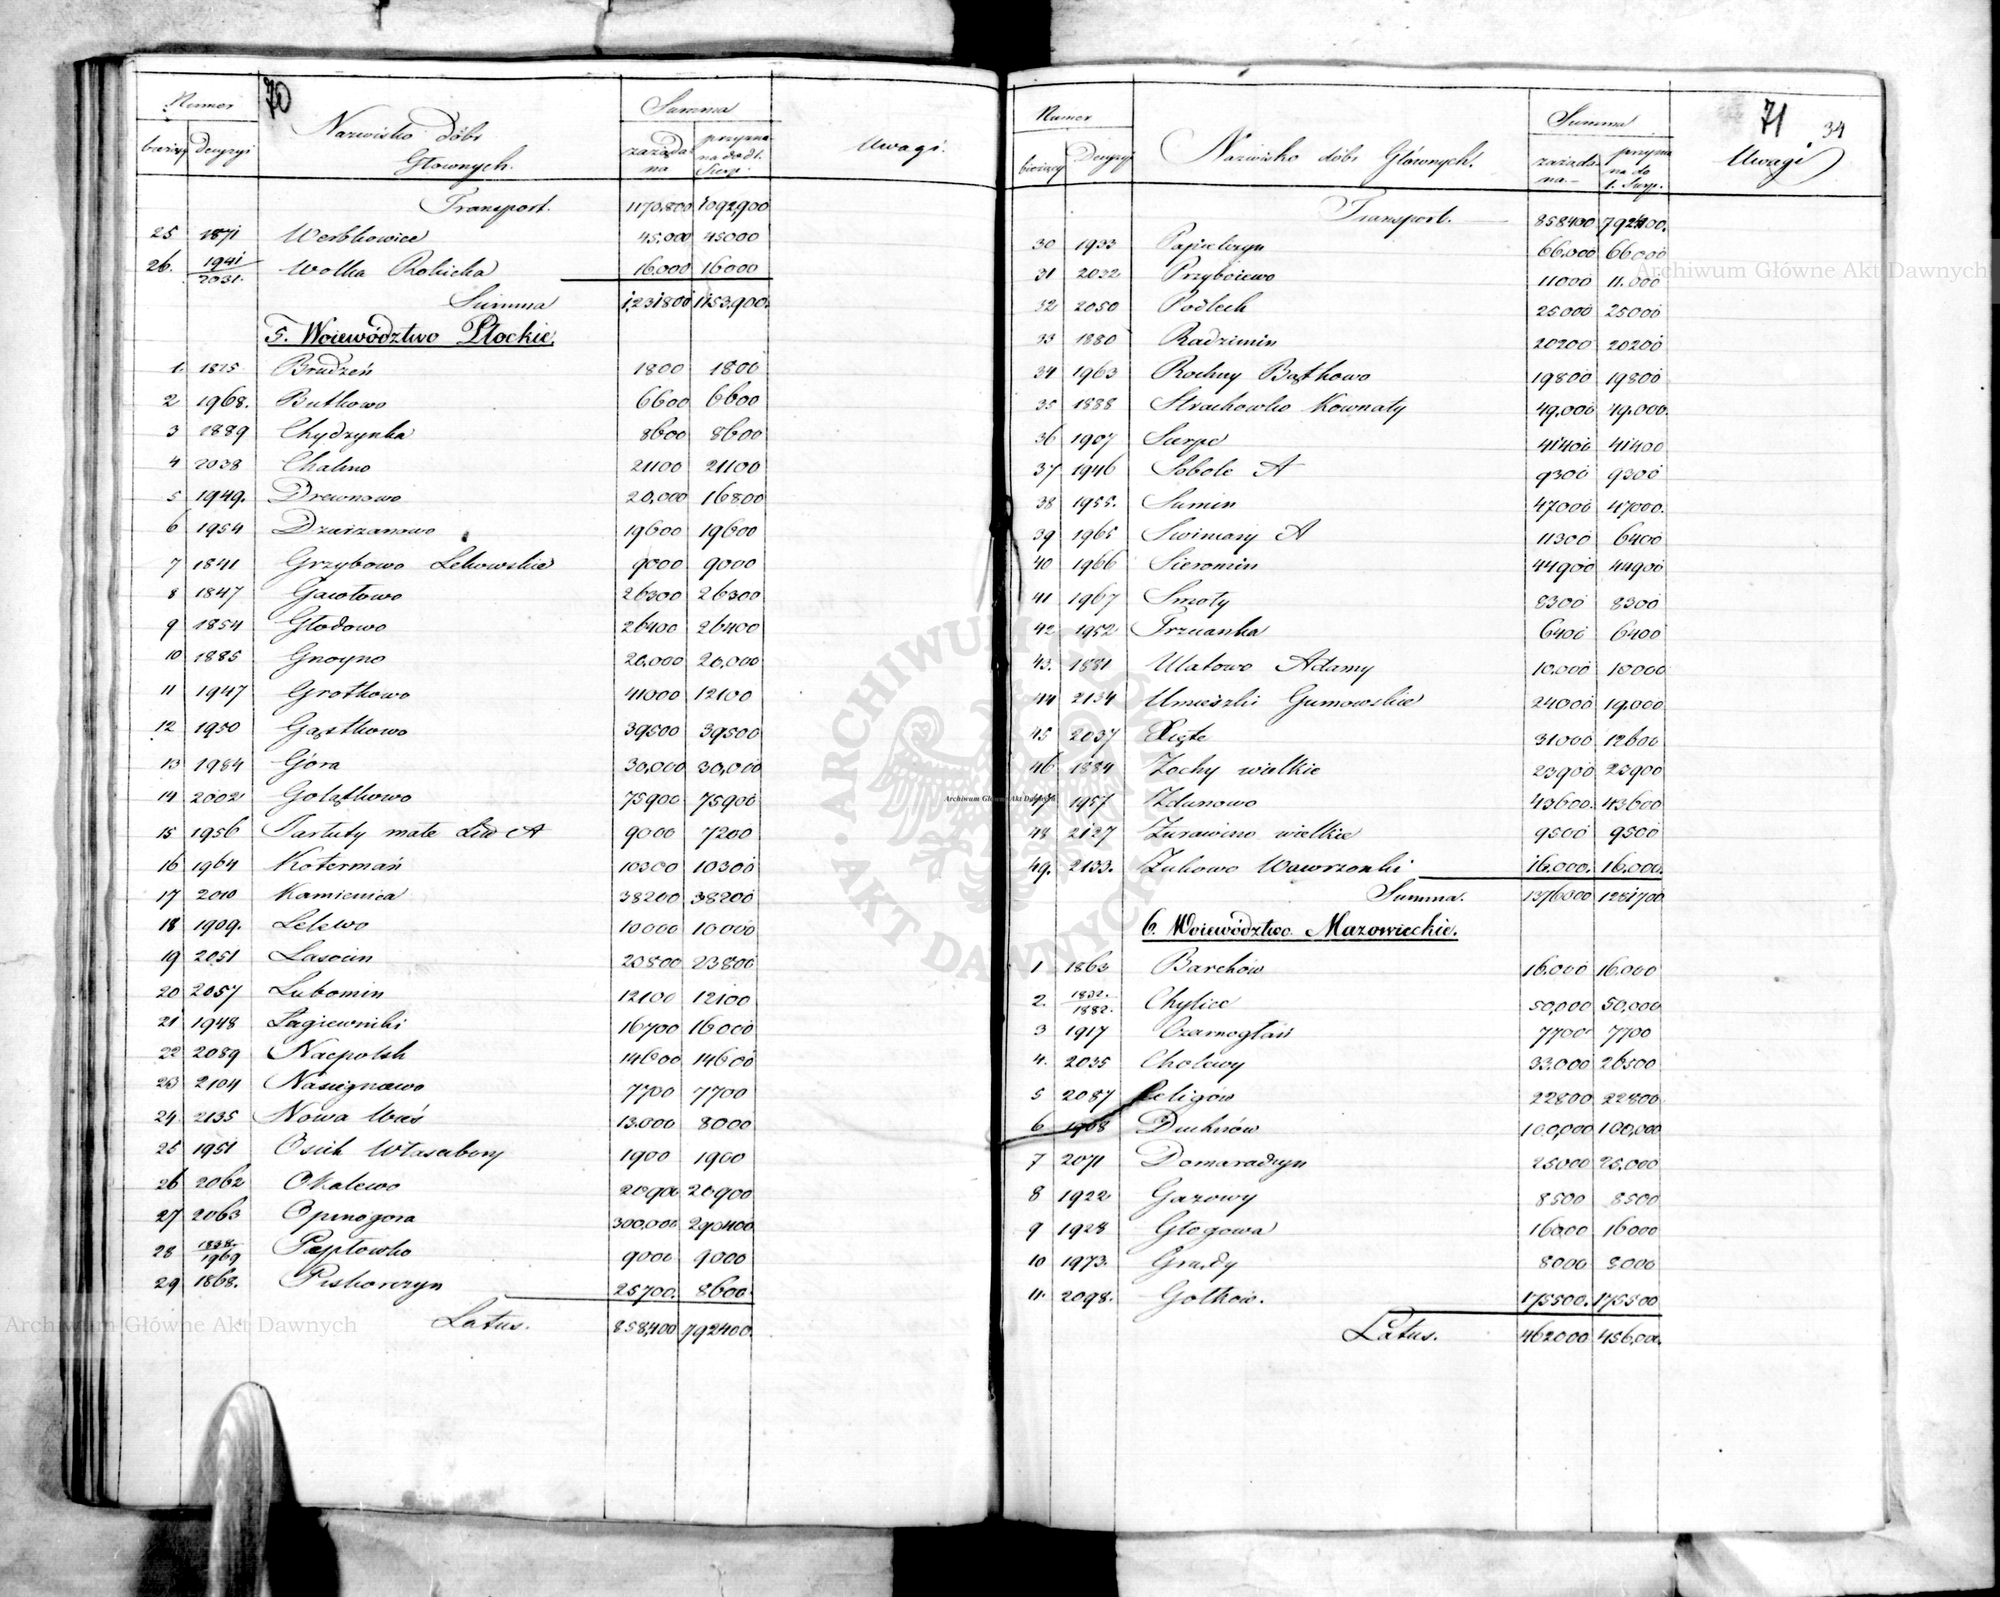 70
Numer Nazwisko dóbr Głownych. Summa Uwagi.
bieżący Decyzyi zażądana przyznana do dt. Sierp.
Transport. 1170,800 1092,900
25 1871 Werbkowice 45,000 45000
26. 1941/2031. Wolka Rokicka 16,000 16000
Summa 1,231800 1153,900.
5. Woiewództwo Płockie.
1. 1825 Brudzeń 1800 1800
2 1968. Butkowo 6600 6600
3 1889 Chydzynka 8600 8600
4 2038 Chalino 21100 21100
5 1949. Drewnowo 20,000 16800
6 1954 Dzierzanowo 19600 19600
7 1841 Grzybowo Lekowskie 9000 9000
8 1847 Gawłowo 26300 26300
9 1854 Głodowo 26400 26400
10 1885 Gnoyno 20,000 20,000
11 1947 Grotkowo 41000 12100
12 1950 Gąstkowo 39500 39500
13 1984 Góra 30,000 30,000
14 2002 Golątkowo 75900 75900
15 1956 Jartuty małe Lit. A 9000 7200
16 1964 Kotermań 10300 10300
17 2010 Kamienica 38200 38200
18 1909. Lelewo 10000 10000
19 2051 Lasocin 23800 23800
20 2057 Lubomin 12100 12100
21 1948 Łagiewniki 16700 16000
22 2089 Nacpolsk 14600 14600
23 2104 Nasiegnowo 7700 7700
24 2135 Nowa Wieś 13.000 8000
25 1951 Osiek Włostybory 1900 1900
26 2062 Okalewo 20900 20900
27 2063 Opinogora 300,000 290400
28 1838./1969 Pajtowko 9000 9000
29 1868. Piskorczyn 25700. 8600
Latus. 858,400 792400.
71 34
Numer Nazwisko dóbr Głównych. Summa Uwagi
bieżący Decyzyi zażądana.- przyznana do 1. Sierp.
Transport. 858400 792400.
30 1933 Papieżyn 66,000 66000
31 2032 Przyboiewo 11000 11.000
32 2050 Podlech 25000 25000
33 1880 Radzimin 20200 20200
34 1963 Rochny Bątkowo 19800 19800
35 1888 Strachowko Kownaty 49,000 49,000.
36 1907 Sierpc 41400 41400
37 1946 Sobole A 9300 9300
38 1955. Sumin 47000 47000.
39 1965 Swiniary A 11300 6400
40 1966 Sieromin 44900 44900
41 1967 Smoły 8300 8300
42 1952 Trzcianka 6400 6400
43. 1881 Ulatowo Adamy 10.000 10000
44 2134 Umieszki Gumowskie 24000 19,000
45 2037 Xięte 31000 12600
46 1884 Zochy wielkie 23900 23900
47 1957 Zdunowo 43600. 43600
48 2127 Zurawino wielkie 9500 9500
49. 2133. Zukowo Wawrzonki 16.000. 16.000.
Summa. 1376000 1281700
6. Woiewództwo Mazowieckie.
1 1863 Barchów 16.000 16.000
2. 1832./1882. Chylice 50,000 50,000
3 1917 Czarnogłów 7700 7700
4. 2035 Cholewy 33.000 26500
5 2087 Celigów 22800 22800
6 1968 Duchnów 100,000 100,000
7 2071 Domaradzyn 25000 25.000
8 1922 Gazowy 8500 8500
9 1928 Głogowa 16000 16000
10 1973. Grądy 8000 8000
11. 2098. Gołków. 175500. 175500
Latus. 462000 456,00.
Archiwum Główne Akt Dawnych